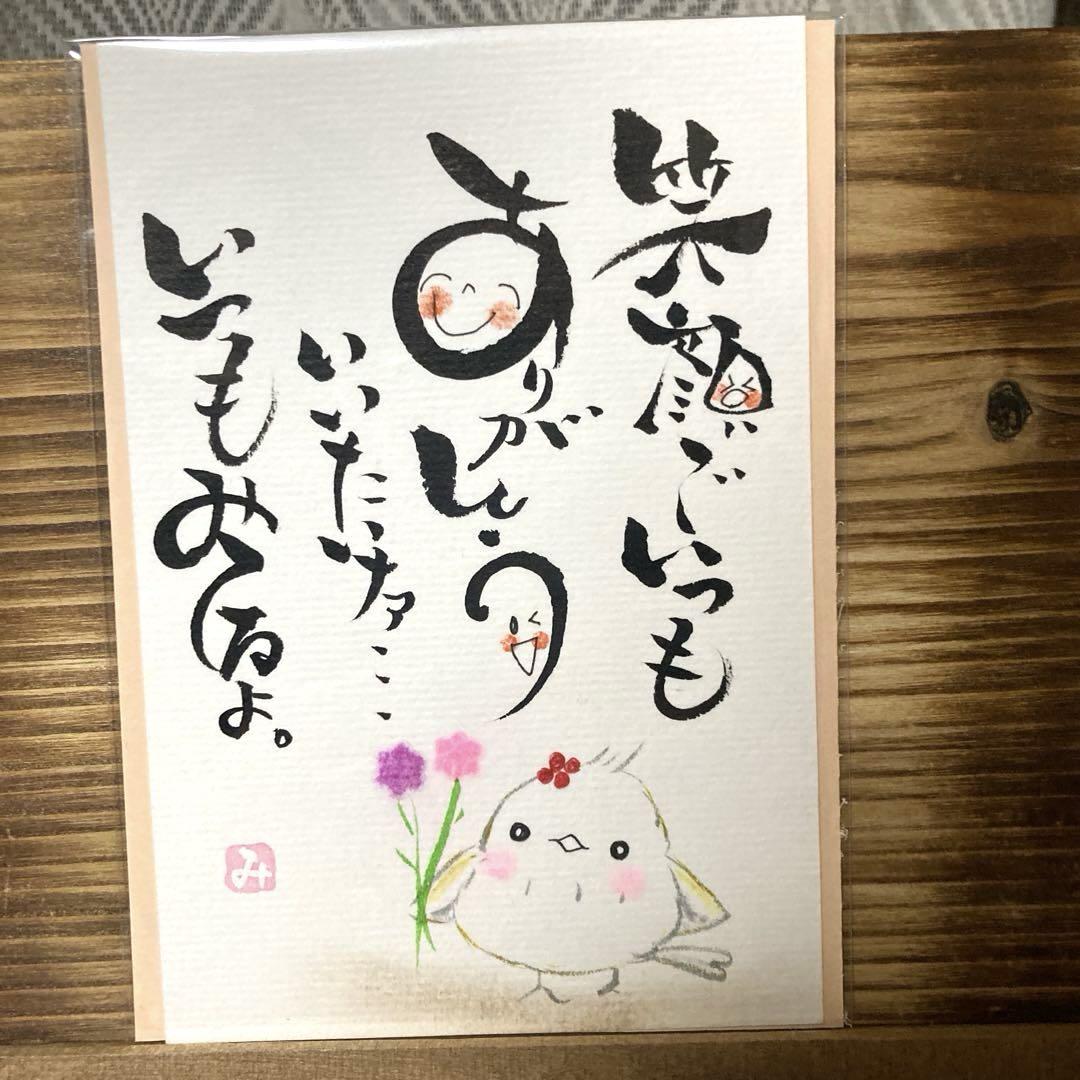 笑顔でいつも
ありがとう
いいたいナァ…
いつもみてるよ。
み